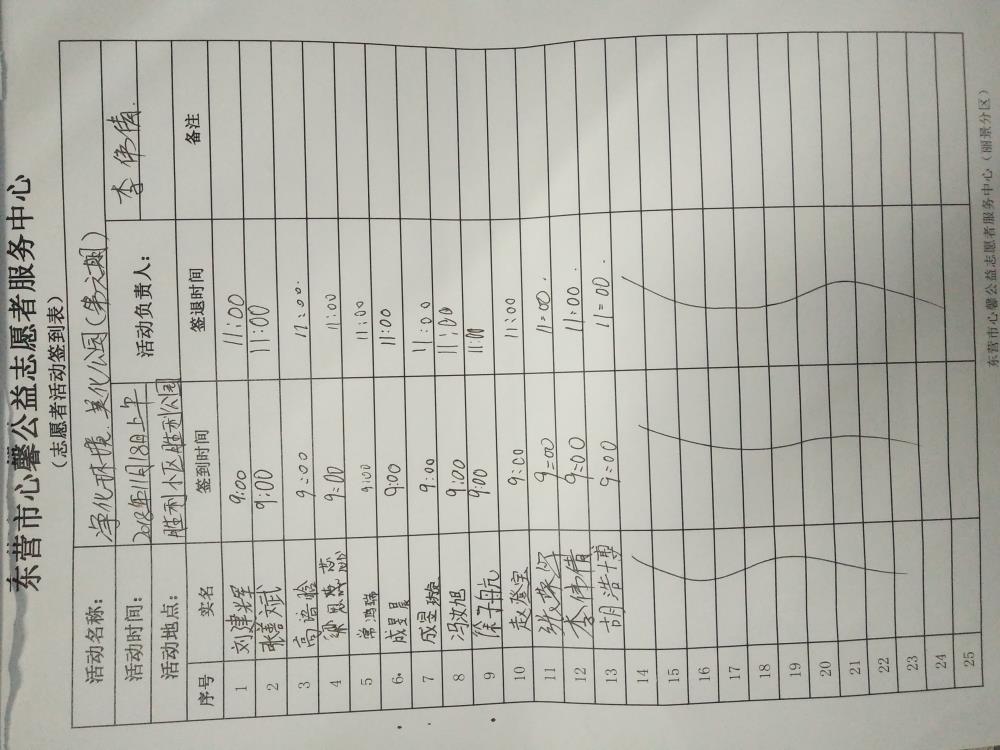 东营市心馨公益志愿者服务中心
（志愿者活动签到表）
活动名称： 净化环境.美化公园(第六期)
活动时间： 2018年11月18日上午 活动负责人： 李伟倩.
活动地点： 胜利小区胜利公园
序号 实名 签到时间 签退时间 备注
1 刘津辉 9:00 11:00
2 张善斌 9:00 11:00
3 高语晗 9:00 11:00.
4 梁思 9:00 11:00
5 常鸿瑞 9:00 11:00
6. 成昱晨 9:00 11:00
7 成昱璇 9:00 11:00
8 冯汝旭 9:00 11:00
9 徐子航 9:00 11:00
10 赵登宝 9:00 11:00
11 张荣华 9=00 11=00.
12 李伟倩 9=00 11=00.
13 胡浩博 9=00 11=00.
14
15
16
17
18
19
20
21
22
23
24
25
东营市心馨公益志愿者服务中心（丽景分区）